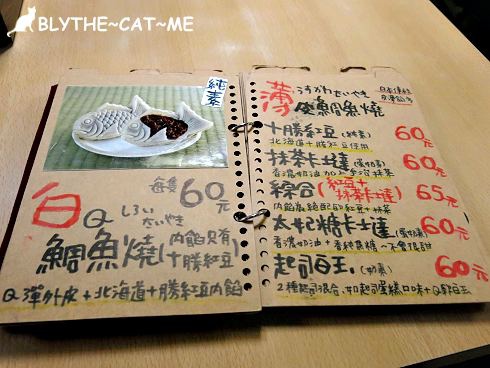 BLYTHE~CAT~ME
純素
每隻60元
白Q しろい たいやき
鯛魚燒(內餡只有十勝紅豆)
Q彈外皮+北海道+十勝紅豆內餡
薄皮鯛魚燒 うすかわたいやき
十勝紅豆(純素) 60元
北海道十勝紅豆使用
抹茶卡士達(蛋奶素) 60元
香濃奶油加上宇治抹茶
綜合(紅豆+抹茶卡士達) 65元
內餡最絕配的紅豆+抹茶
太妃糖卡士達(蛋奶素) 60元
香濃奶油+香純焦糖~不會很甜
起司白玉.(奶素) 60元
2種起司混合,如起司蛋糕口味+Q軟白玉